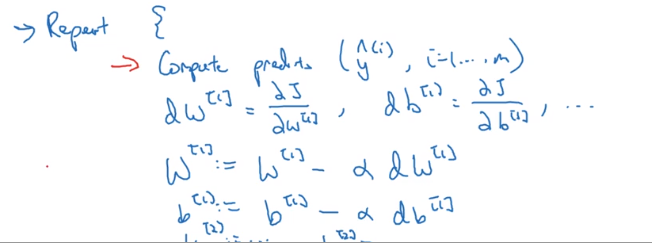 → Repeat {
→ Compute predicts (ŷ^(i), i=1...,m)
dW^[1] = ∂J/∂W^[1], db^[1] = ∂J/∂b^[1], ...
W^[1] := W^[1] - α dW^[1]
b^[1] := b^[1] - α db^[1]